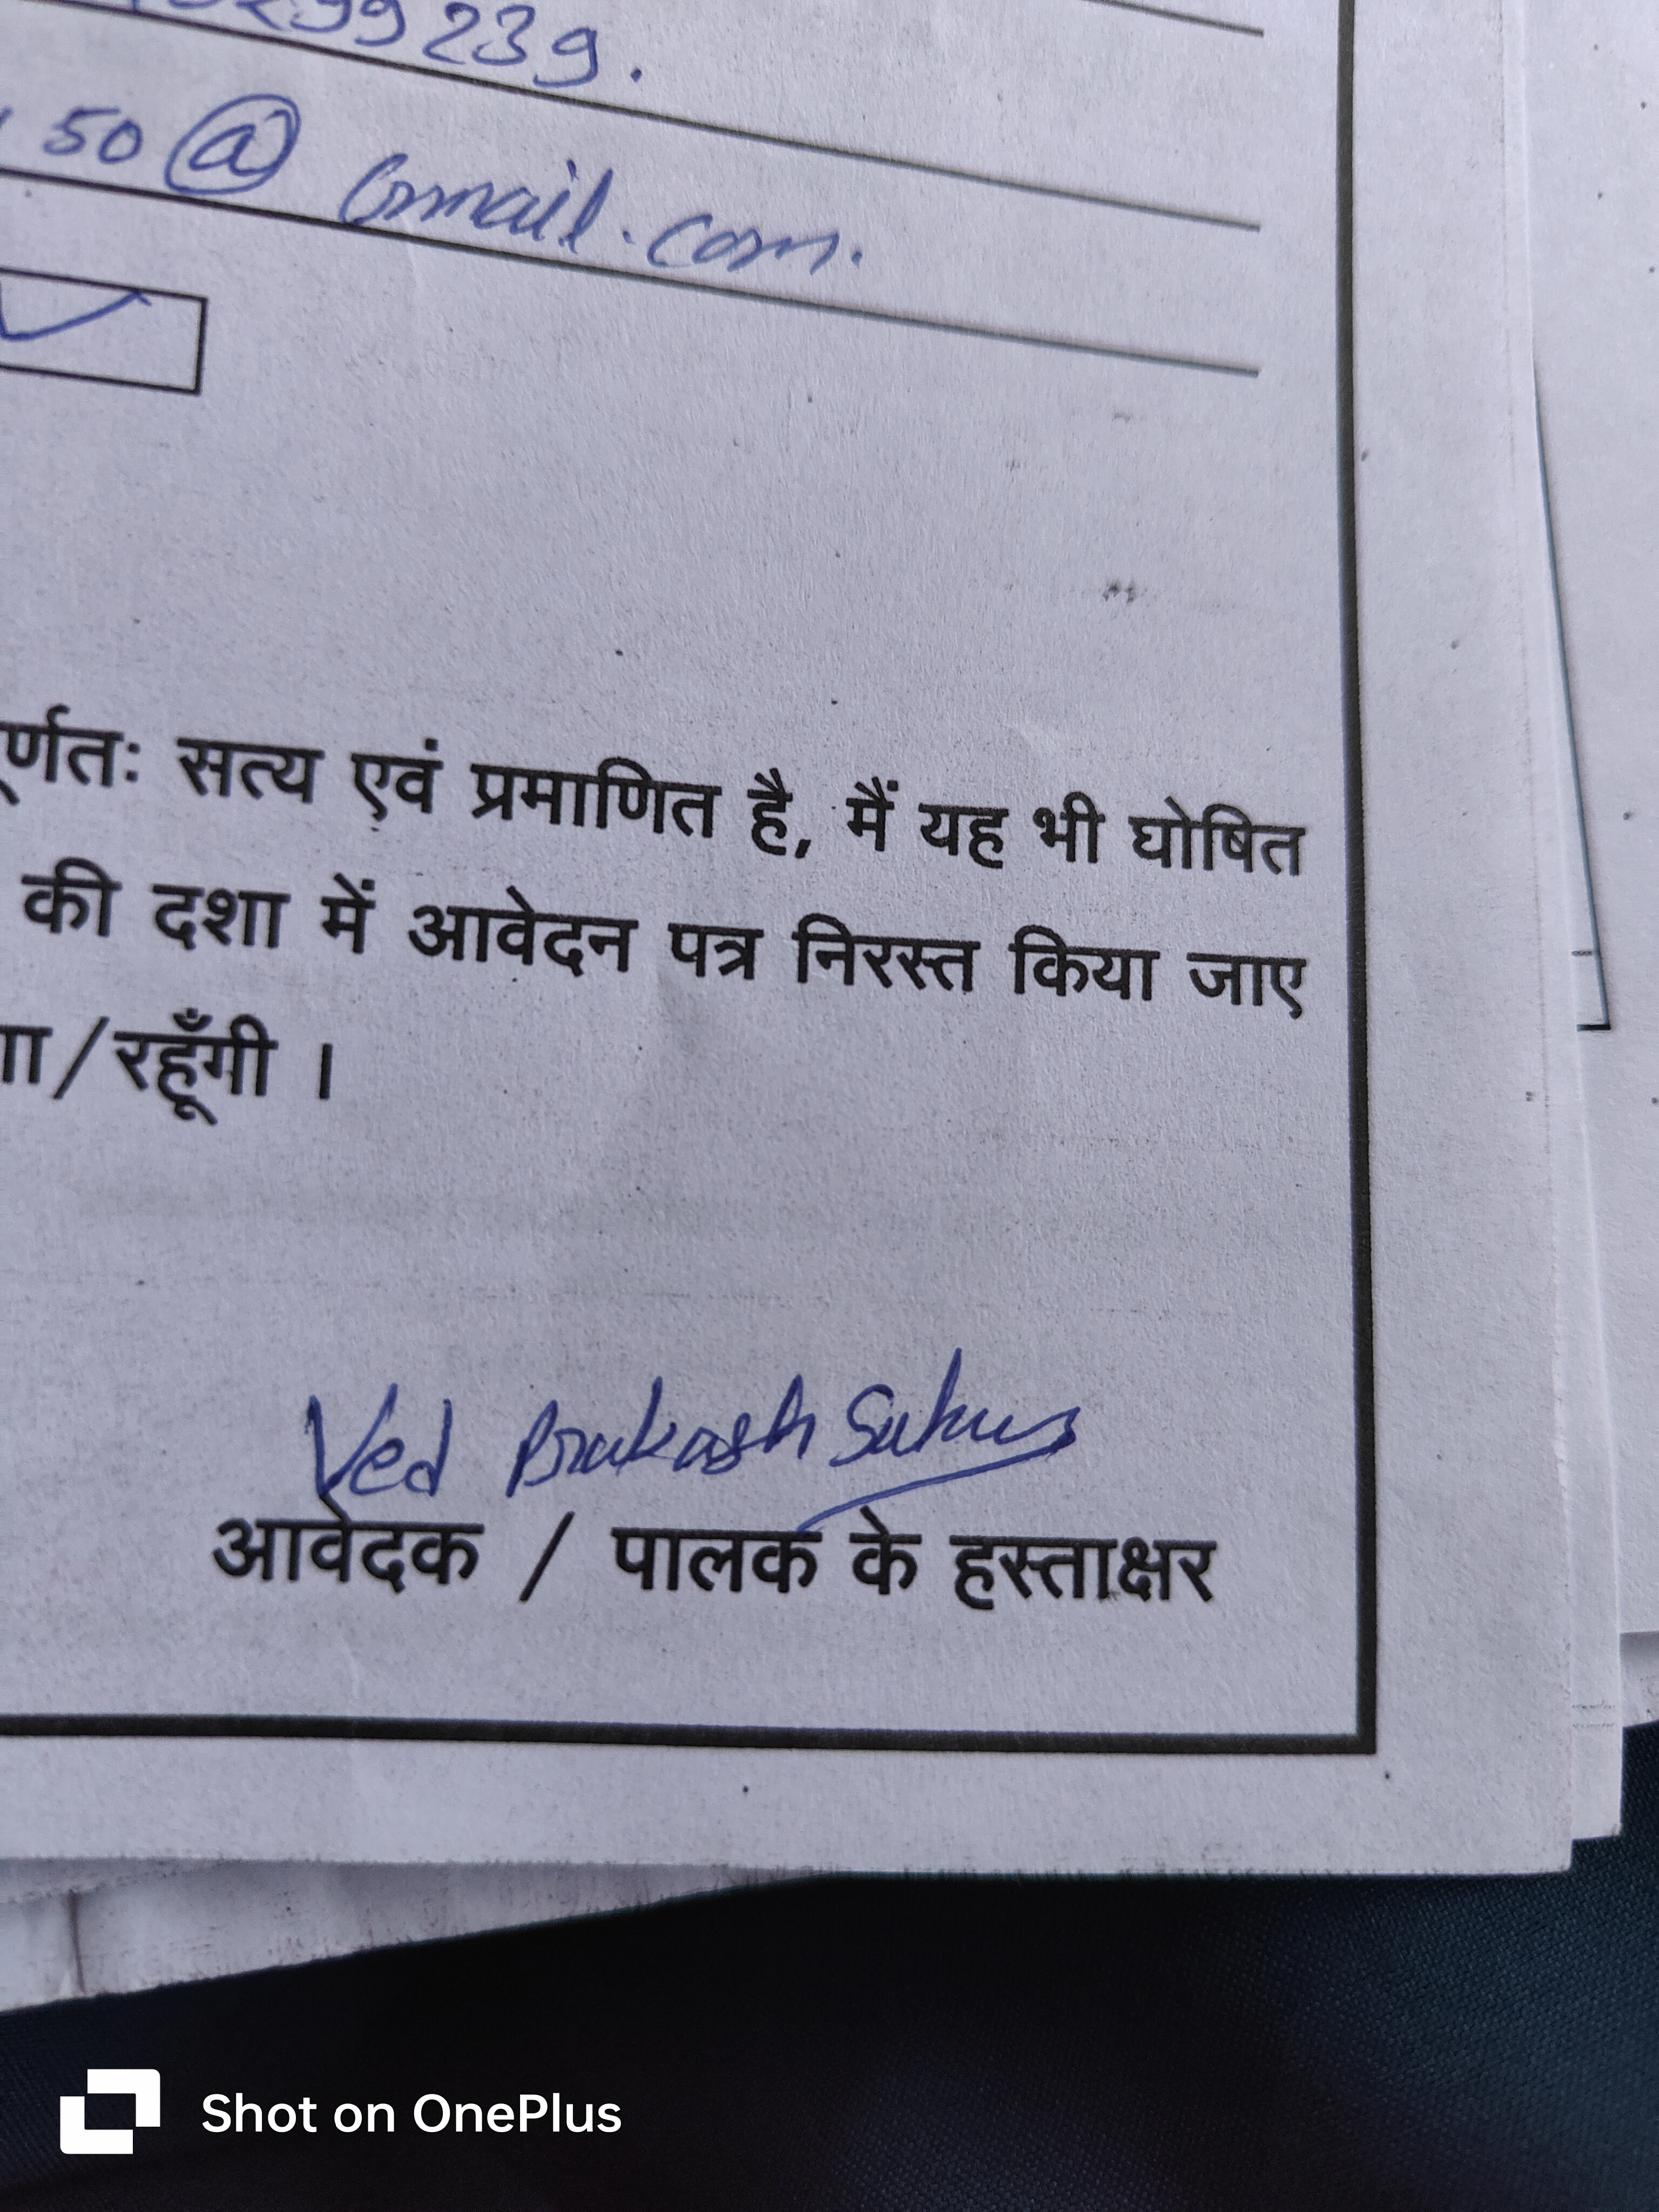 99239.
50@Gmail.com.
पूर्णतः सत्य एवं प्रमाणित है, मैं यह भी घोषित
की दशा में आवेदन पत्र निरस्त किया जाए
गा/रहूँगी ।
Ved Prakash
आवेदक / पालक के हस्ताक्षर
Shot on OnePlus